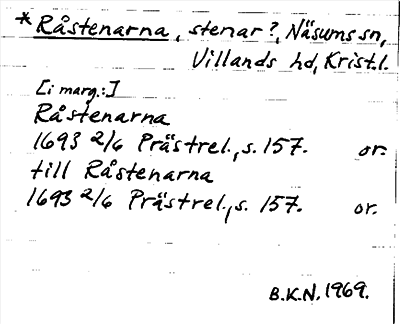 *Råstenarna, stenar?, Näsums sn,
Villands hd, Krist.l.
[i marg.:]
Råstenarna
1693 2/6 Prästrel., s. 157. or.
till Råstenarna
1693 2/6 Prästrel., s. 157. or.
B.K.N. 1969.